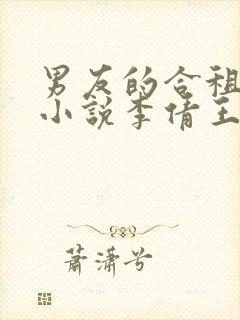 男友的合租
小说李倩王
萧潇兮